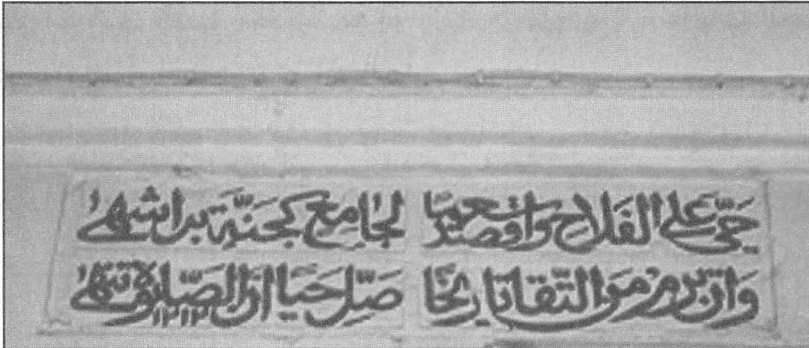 حَيِّ عَلى الفَلاحِ وَاقصد سعيا لجَامِع كجَنَّة بدا شهى
وَان ترم مَن التّقا تاريخا صَلِّ حَيّا انَّ الصَّلوة تنهى ١٢١٢